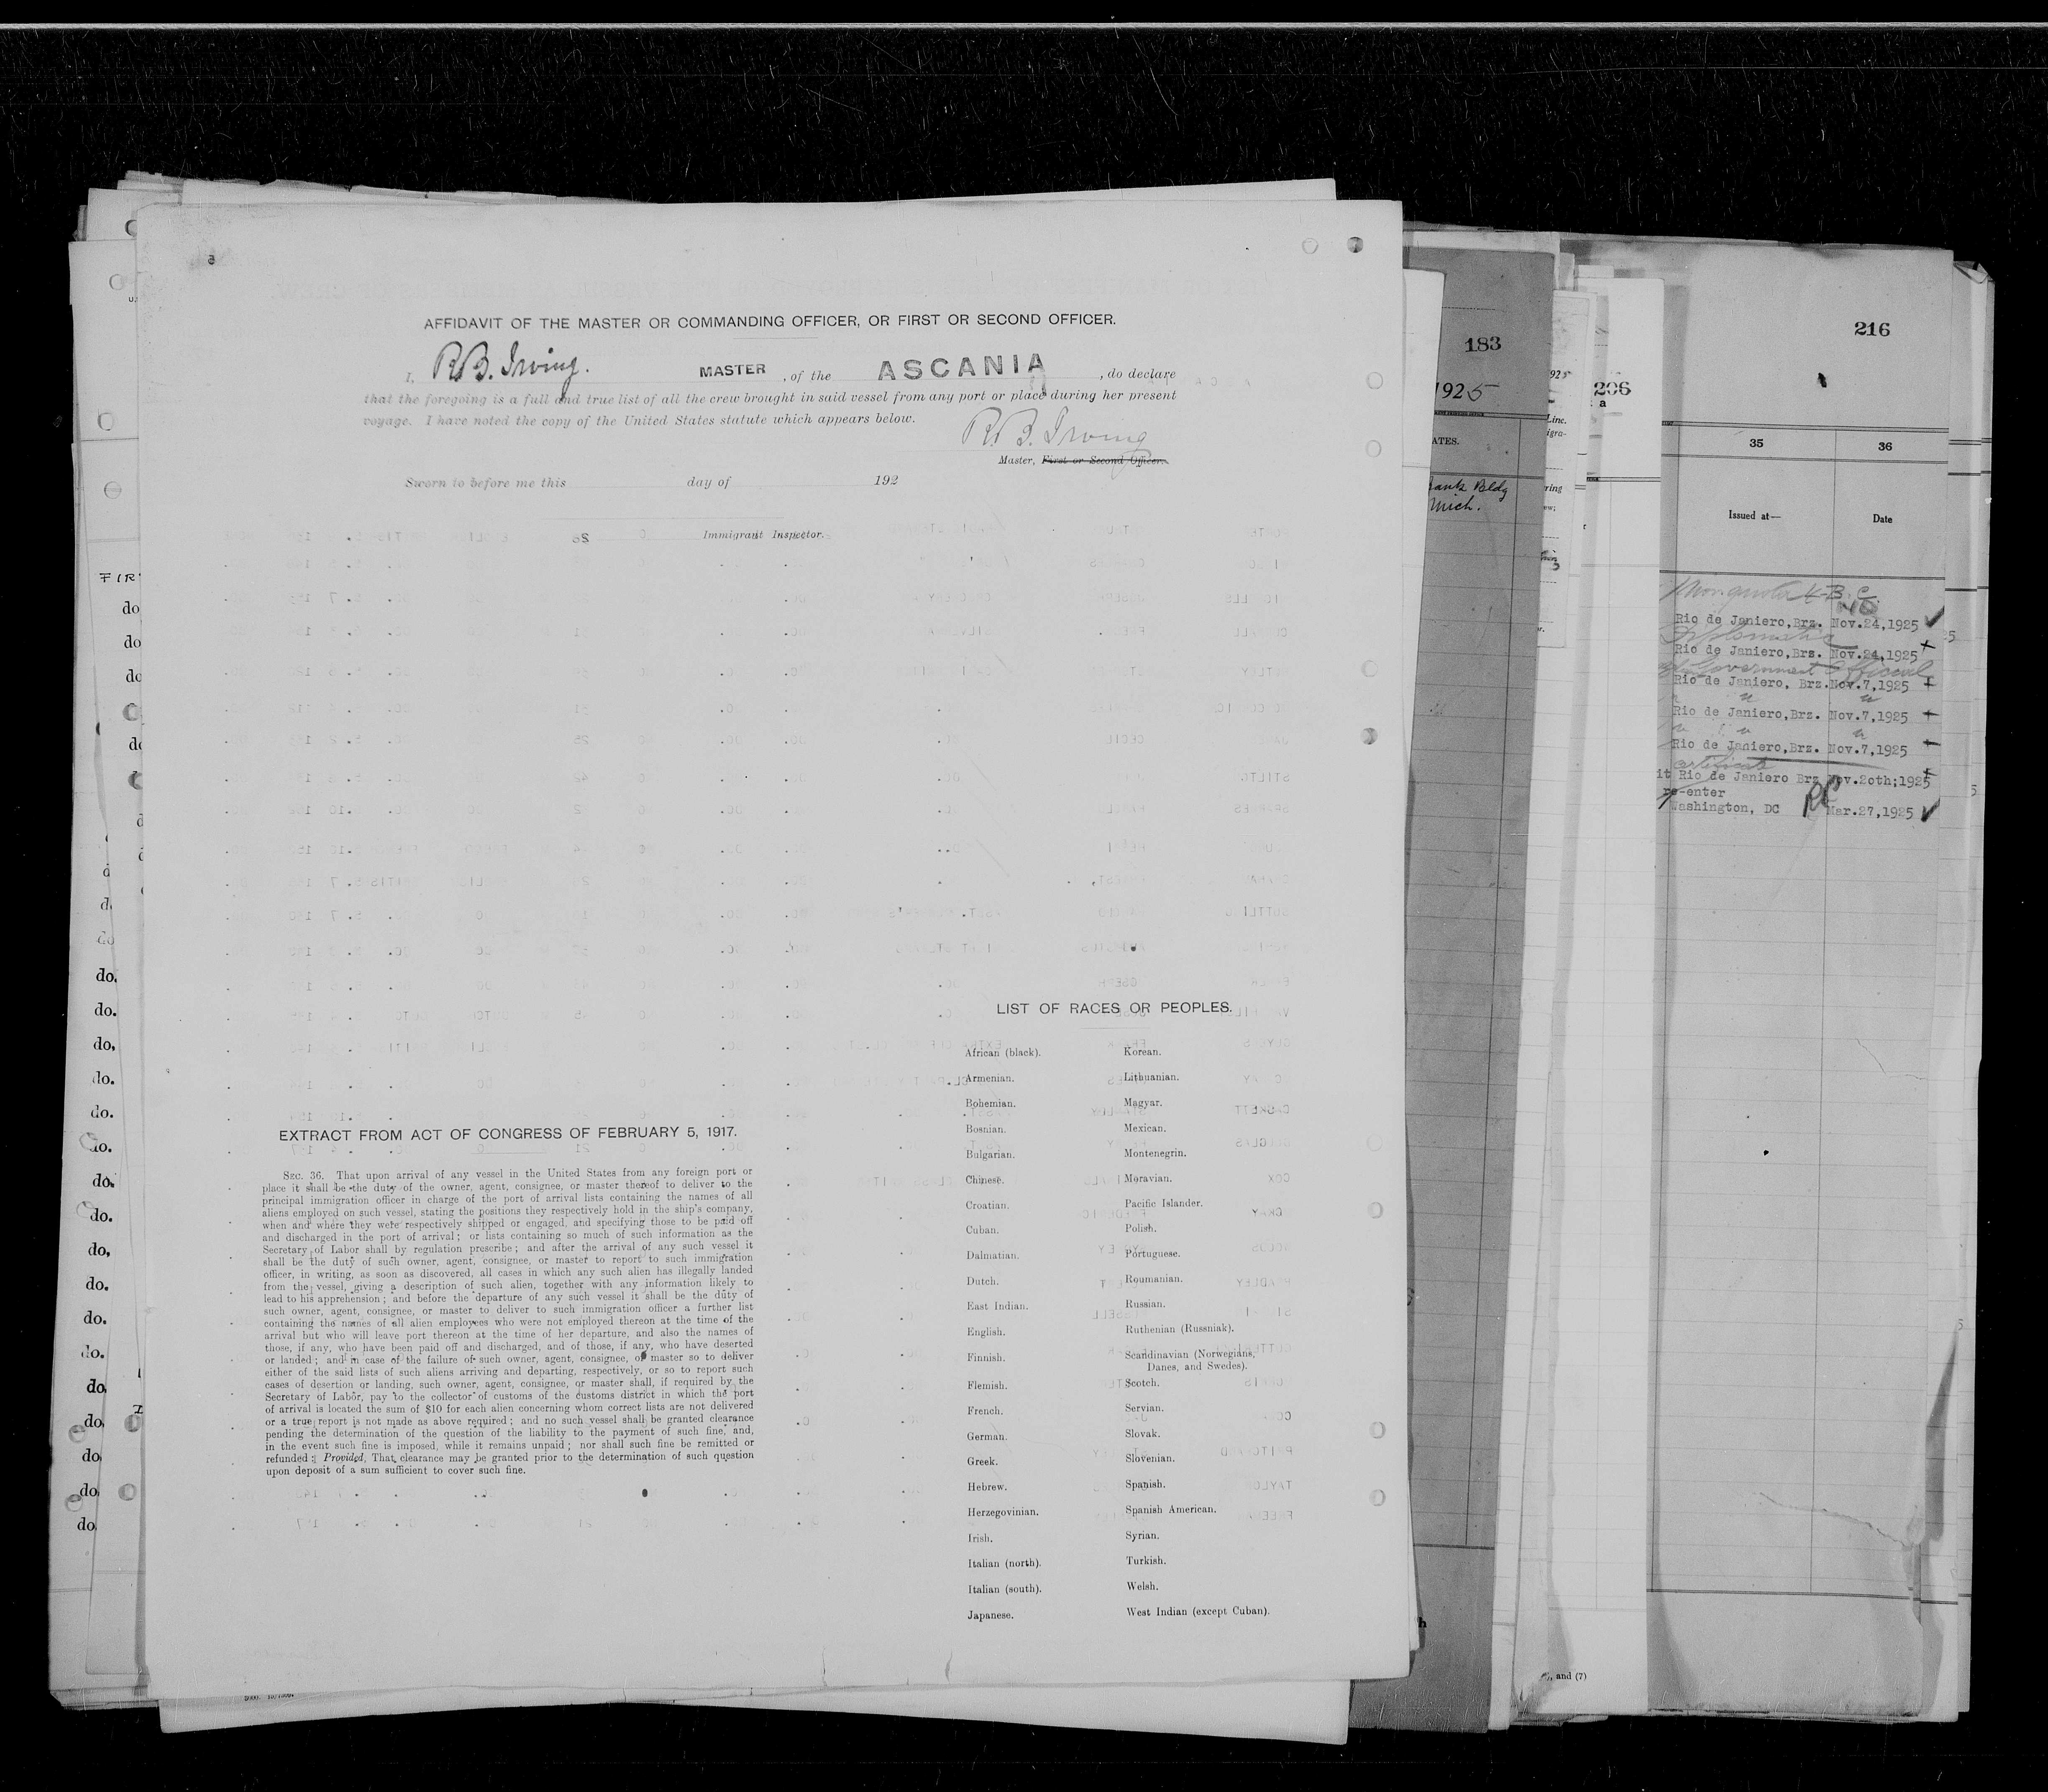 AFFIDAVIT OF THE MASTER OR COMMANDING OFFICER, OR FIRST OR SECOND OFFICER.
I, R.B. Irving. MASTER, of the ASCANIA, do declare
that the foregoing is a full and true list of all the crew brought in said vessel from any port or place during her present
voyage. I have noted the copy of the United States statute which appears below.
R.B. Irving
Master, First or Second Officer.
Sworn to before me this day of 192
Immigrant Inspector.
EXTRACT FROM ACT OF CONGRESS OF FEBRUARY 5, 1917.
SEC. 36. That upon arrival of any vessel in the United States from any foreign port or
place it shall be the duty of the owner, agent, consignee, or master thereof to deliver to the
principal immigration officer in charge of the port of arrival lists containing the names of all
aliens employed on such vessel, stating the positions they respectively hold in the ship's company,
when and where they were respectively shipped or engaged, and specifying those to be paid off
and discharged in the port of arrival; or lists containing so much of such information as the
Secretary of Labor shall by regulation prescribe; and after the arrival of any such vessel it
shall be the duty of such owner, agent, consignee, or master to report to such immigration
officer, in writing, as soon as discovered, all cases in which any such alien has illegally landed
from the vessel, giving a description of such alien, together with any information likely to
lead to his apprehension; and before the departure of any such vessel it shall be the duty of
such owner, agent, consignee, or master to deliver to such immigration officer a further list
containing the names of all alien employees who were not employed thereon at the time of the
arrival but who will leave port thereon at the time of her departure, and also the names of
those, if any, who have been paid off and discharged, and of those, if any, who have deserted
or landed; and in case of the failure of such owner, agent, consignee, or master so to deliver
either of the said lists of such aliens arriving and departing, respectively, or so to report such
cases of desertion or landing, such owner, agent, consignee, or master shall, if required by the
Secretary of Labor, pay to the collector of customs of the customs district in which the port
of arrival is located the sum of $10 for each alien concerning whom correct lists are not delivered
or a true report is not made as above required; and no such vessel shall be granted clearance
pending the determination of the question of the liability to the payment of such fine, and,
in the event such fine is imposed, while it remains unpaid; nor shall such fine be remitted or
refunded: Provided, That clearance may be granted prior to the determination of such question
upon deposit of a sum sufficient to cover such fine.
LIST OF RACES OR PEOPLES.
African (black).
Armenian.
Bohemian.
Bosnian.
Bulgarian.
Chinese.
Croatian.
Cuban.
Dalmatian.
Dutch.
East Indian.
English.
Finnish.
Flemish.
French.
German.
Greek.
Hebrew.
Herzegovinian.
Irish.
Italian (north).
Italian (south).
Japanese.
Korean.
Lithuanian.
Magyar.
Mexican.
Montenegrin.
Moravian.
Pacific Islander.
Polish.
Portuguese.
Roumanian.
Russian.
Ruthenian (Russniak).
Scandinavian (Norwegians,
Danes, and Swedes).
Scotch.
Servian.
Slovak.
Slovenian.
Spanish.
Spanish American.
Syrian.
Turkish.
Welsh.
West Indian (except Cuban).
183
1925
Bldg
Mich.
206
a
, and (7)
216
35 36
Issued at— Date
Rio de Janiero,Brz. Nov.24,1925
Diplomatic
Rio de Janiero,Brs. Nov.24,1925
Government Official
Rio de Janiero, Brz. Nov.7,1925
Rio de Janiero,Brz. Nov.7,1925
Rio de Janiero,Brz. Nov.7,1925
certificate
Rio de Janiero Brz Nov.2oth;1925
re-enter
Washington, DC Mar.27,1925